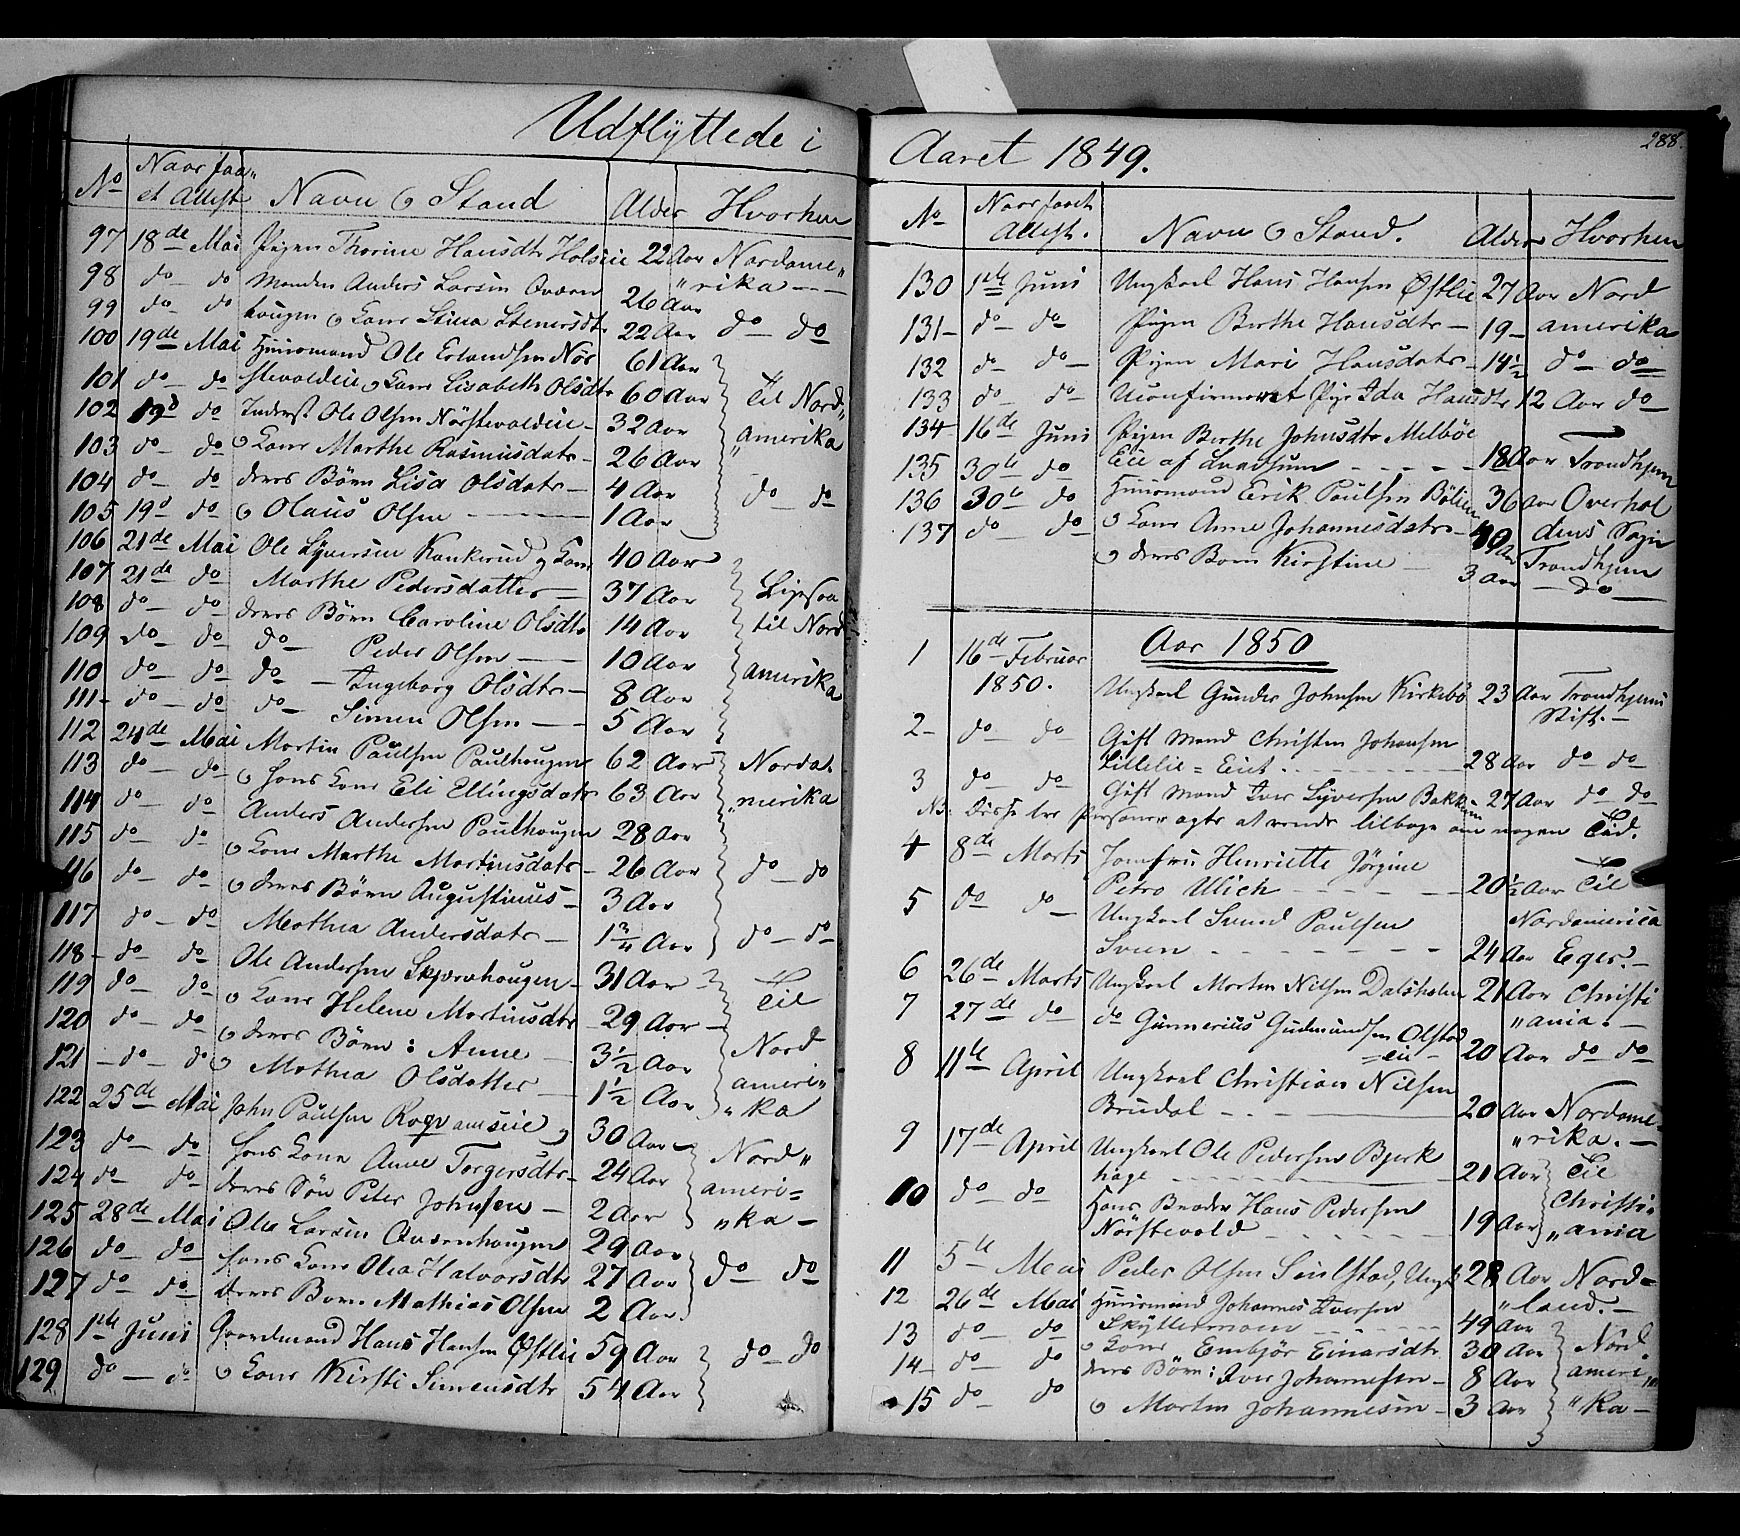 Udflyttede i
No Naar faaet Attest Navn & Stand Alder Hvorhen
97 18de Mai Pigen Thorine Hansdtr Holseie 22 Aar Nordame„
98 do do Manden Anders Larsen Qværn 26 Aar „rika
99 do do hougen & Kone Stina Stenersdtr 22 Aar do do
100 19de Mai Huusmand Ole Erlandsen Nør 61 Aar
101 do do stevoldeie & Kone Lisabeth Olsdtr 60 Aar Til Nord„
102 19d do Inderst Ole Olsen Nörstevoldeie 32 Aar „amerika
103 do do & Kone Marthe Rasmusdatr 26 Aar
104 do do deres Börn Lisa Olsdatr 4 Aar do do
105 19d do & Olaus Olsen 1 Aar
106 21de Mai Ole Syversen Kankerud & Kone 40 Aar
107 21de do Marthe Pedersdatter 37 Aar
108 do do deres Börn Caroline Olsdtr 14 Aar til Nord
109 do do do Peder Olsen 10 Aar
110 do do do Ingeborg Olsdtr 8 Aar amerika
111 do do do Simen Olsen 5 Aar
112 24de Mai Martin Paulsen Paulhougen 62 Aar Norda„
113 do do & hans Kone Eli Ellingsdatr 63 Aar „merika
114 do do Anders Andersen Paulhougen 28 Aar
115 do do & Kone Marthe Martinusdatr 26 Aar do do
116 do do & deres Börn Augustinus 3 Aar
117 do do Mathea Andersdatr 1 3/4 Aar do do
118 do do Ole Andersen Skjærvhougen 31 Aar
119 do do & Kone Helene Martinsdtr 29 Aar Til
120 do do & deres Börn: Anne 3 1/2 Aar Nord
121 do do & Mathea Olsdatter 1 1/2 Aar ameri„
122 25de Mai John Paulsen & 30 Aar „ka
123 do do hans Kone Anne Torgersdtr 24 Aar Nord„
124 do do deres Sön Peter Johnsen 2 Aar ameri=
125 28de Mai Ole Larsen Qværnhougen 29 Aar „ka
126 do do hans Kone Olea Halvorsdtr 27 Aar do do
127 do do deres Barn Mathias Olsen 2 Aar
128 1ste Juni Gaardmand Hans Hansen Østlie 59 Aar
129 do do & Kone Kirsti Simensdtr 54 Aar do do
Aaret 1849.
288.
No Naar faaet Attest. Navn & Stand. Alder Hvorhen
130 1ste Juni Ungkarl Hans Hansen Østlie 27 Aar Nord
131 do do Pigen Berthe Hansdtr 19 amerika
132 do do Pigen Mari Hansdatr 14 1/2 do do
133 do do Uconfirmeret Pige Ida Hansdtr 12 Aar do
134 16de Juni Pigen Berthe Johnsdtr Melböe
135 30te do Eie af 18 Aar Trondhjem
136 30te do Huusmand Erik Paulsen Bölien 36 Aar Overhal
137 do do & Kone Anne Johannesdatr 40 Aar dens Sogn
& deres Barn Kirstine 3 Aar Trondhjem
do
Aar 1850
1 16de Februar
1850. Ungkarl Gunder Johnsen Kirkebö 23 Aar Trondhjems
Stift.
2 do do Gift Mand Christen Johansen
Lillelie=Eiet 28 Aar do do
3 do do Gift Mand Iver Syversen Bakken 27 Aar do do
NB. Disse tre Personer agte at vende tilbage om nogen Tid.
4 8de Marts Jomfru Henriette Jörgine
Petro Ulich 20 1/2 Aar Til
5 do do Ungkarl Svend Paulsen Nordamerica
Sveen 24 Aar Eger.
6 26de Marts Ungkarl Morten Nilsen Dalsholen 21 Aar Christi
7 27de do do Gunnerius Gudmundsen Olstad „ania.
=eie 20 Aar do do
8 11te April Ungkarl Christian Nilsen
Brudal 20 Aar Nordame„
„rika.
9 17de April Ungkarl Ole Pedersen Bjerk
hage 21 Aar Til
10 do do Hans Broder Hans Pedersen Christi„
Nörstevold 19 Aar „ania
11 5te Mai Peder Olsen 28 Aar Nord=
12 26de Mai Huusmand Johannes Iversen „land.
Skyttermoen 49 Aar
13 do do & Kone Embjör Einarsdtr 30 Aar Nord
14 do do deres Börn: Iver Johannesen 8 Aar ameri„
15 do do & Morten Johannesen 3 Aar „ka